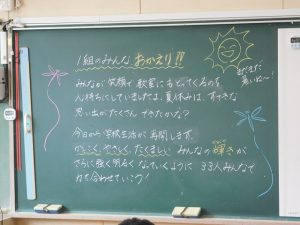 1組のみんな おかえり!!
まだまだ
暑いね〜
みんなが 笑顔で 教室に もどってくるのを
心待ちにしていましたよ。夏休みは、すてきな
思い出が たくさん できたかな?
今日から 学校生活が 再開します。
かしこく、やさしく、たくましい みんなの 輝きが
さらに 強く 明るく なっていくように 33人みんなで
力を 合わせていこう!